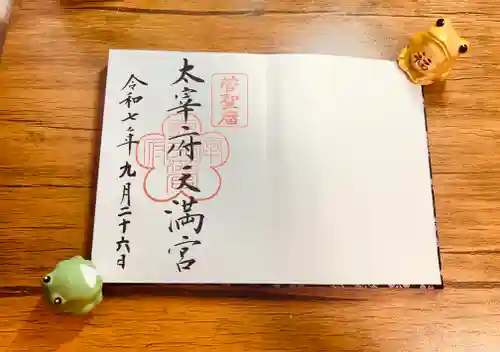 菅聖暦
太宰府天満宮
令和七年九月二十六日
福